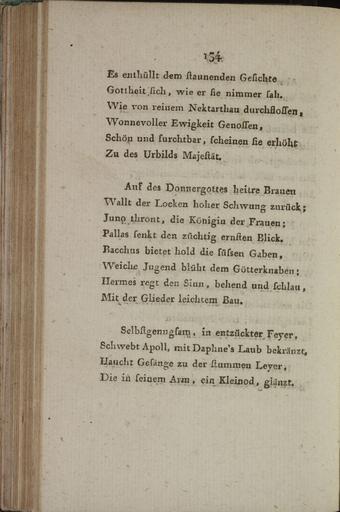 154
Es enthüllt dem ſtaunenden Geſichte
Gottheit ſich, wie er ſie nimmer ſah.
Wie von reinem Nektarthau durchfloſſen,
Wonnevoller Ewigkeit Genoſſen,
Schön und furchtbar, ſcheinen ſie erhöht
Zu des Urbilds Majeſtät.
Auf des Donnergottes heitre Brauen
Wallt der Locken hoher Schwung zurück;
Juno thront, die Königin der Frauen;
Pallas ſenkt den züchtig ernſten Blick.
Bacchus bietet hold die ſüſsen Gaben,
Weiche Jugend blüht dem Götterknaben;
Hermes regt den Sinn, behend und ſchlau,
Mit der Glieder leichtem Bau.
Selbſtgenugſam, in entzückter Feyer,
Schwebt Apoll, mit Daphne's Laub bekränzt,
Haucht Geſänge zu der ſtummen Leyer,
Die in ſeinem Arm, ein Kleinod, glänzt.